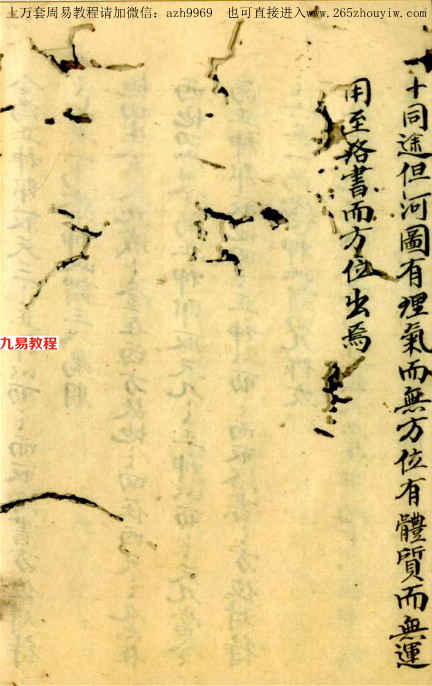 上万套周易教程请加微信：azh9969 也可直接进入www.265zhouyiw.com
十同途但河圖有理氣而無方位有體質而無運
用至洛書而方位出焉
九易教程